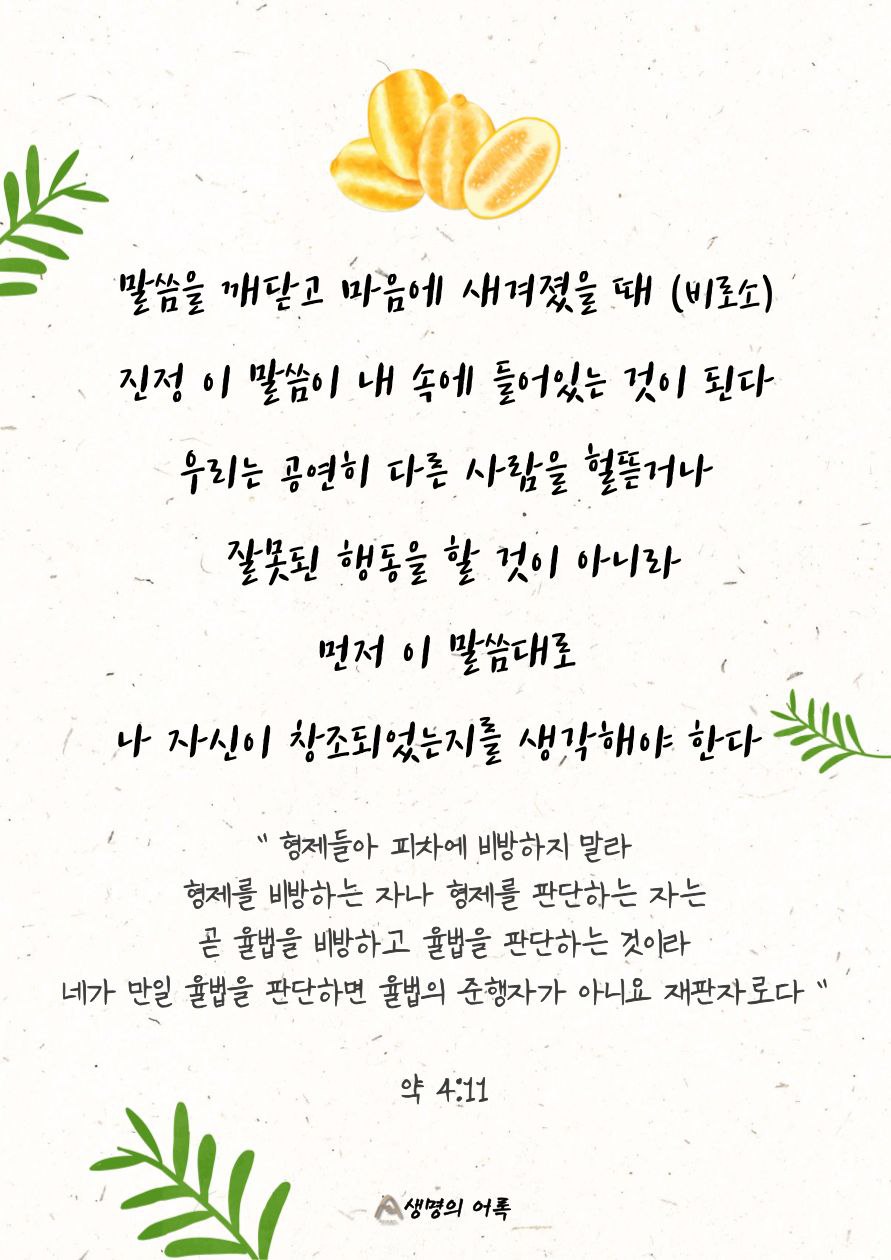 말씀을 깨닫고 마음에 새겨졌을 때 (비로소)
진정 이 말씀이 내 속에 들어있는 것이 된다
우리는 공연히 다른 사람을 헐뜯거나
잘못된 행동을 할 것이 아니라
먼저 이 말씀대로
나 자신이 창조되었는지를 생각해야 한다
" 형제들아 피차에 비방하지 말라
형제를 비방하는 자나 형제를 판단하는 자는
곧 율법을 비방하고 율법을 판단하는 것이라
네가 만일 율법을 판단하면 율법의 준행자가 아니요 재판자로다 "
약 4:11
생명의 어록